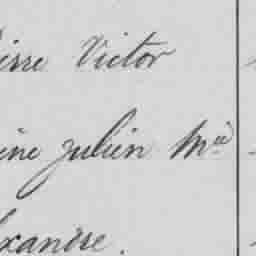 ierre Victor
ine Julien Mie
exandre.